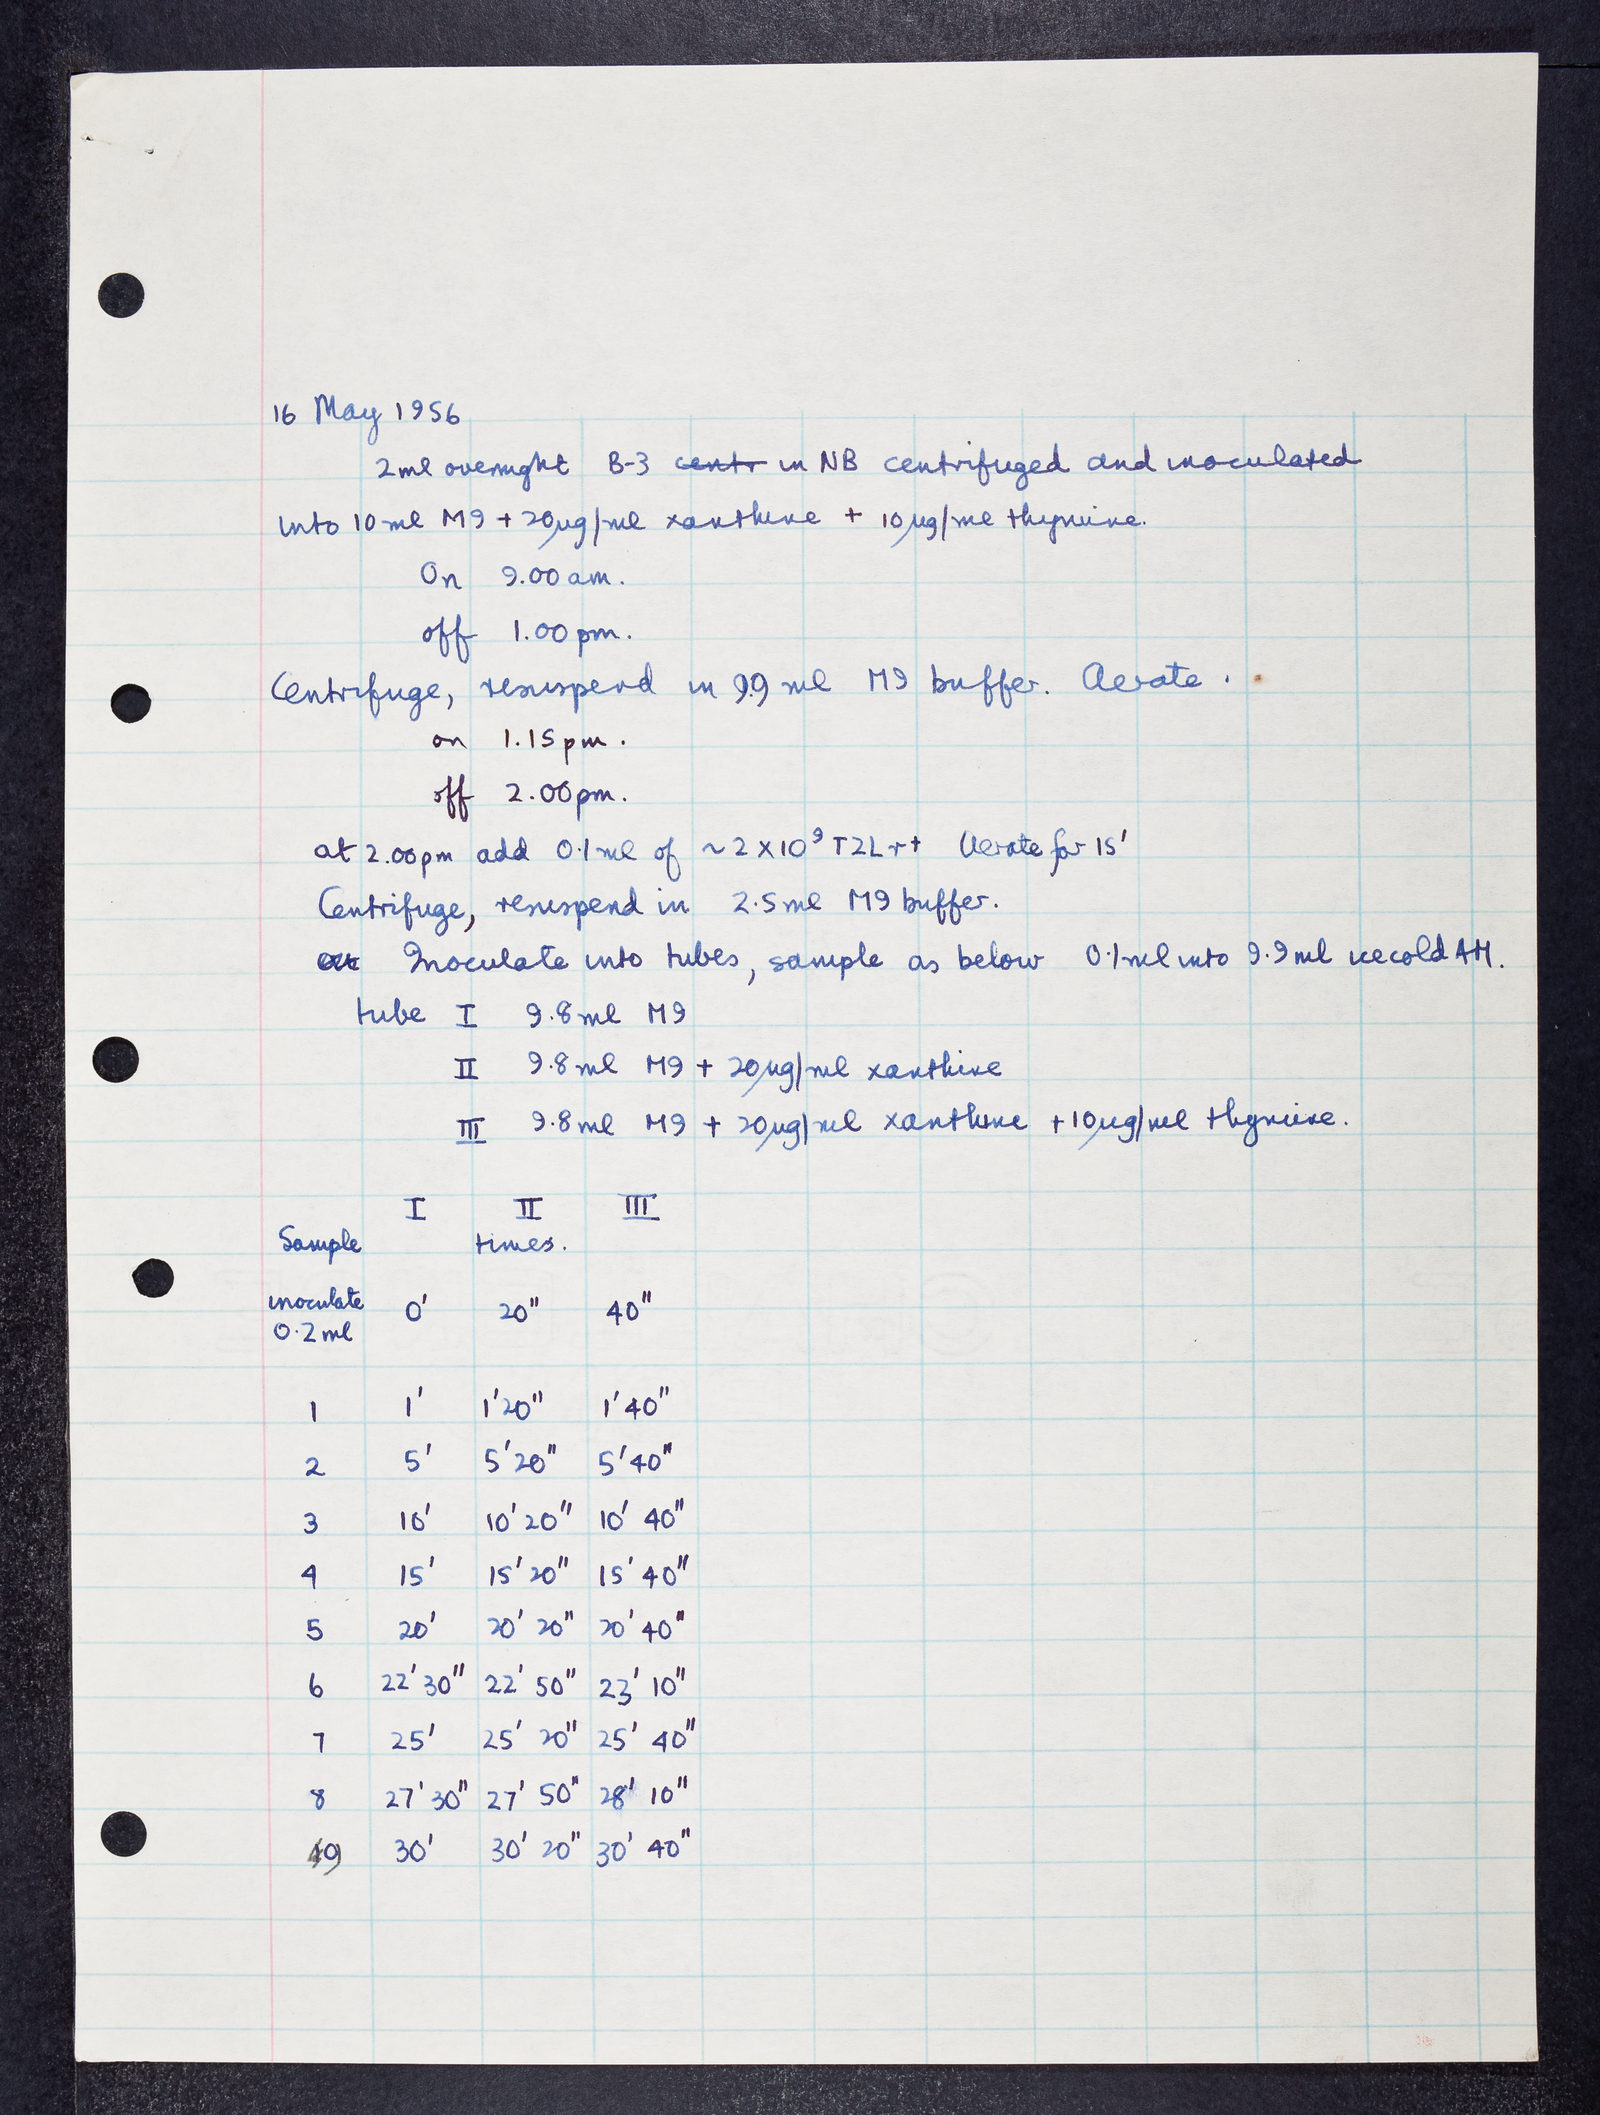 16 May 1956
2ml overnight B-3 centr in NB centrifuged and inoculated
into 10ml M9 + 20µg/ml xanthine + 10µg/ml thymine.
On 9.00am.
off 1.00pm.
Centrifuge, resuspend in 9.9 ml M9 buffer. Aerate.
on 1.15pm.
off 2.00pm.
at 2.00pm add 0.1ml of ~2 x 10⁹ T2L r+ Aerate for 15'
Centrifuge, resuspend in 2.5ml M9 buffer.
Inoculate into tubes, sample as below 0.1ml into 9.9ml icecold AM.
tube I 9.8ml M9
II 9.8ml M9 + 20µg/ml xanthine
III 9.8ml M9 + 20µg/ml xanthine + 10µg/ml thymine.
I II III
Sample times.
inoculate
0.2ml 0' 20" 40"
1 1' 1'20" 1'40"
2 5' 5'20" 5'40"
3 10' 10'20" 10' 40"
4 15' 15'20" 15' 40"
5 20' 20' 20" 20' 40"
6 22'30" 22' 50" 23' 10"
7 25' 25' 20" 25' 40"
8 27'30" 27' 50" 28' 10"
9 30' 30' 20" 30' 40"